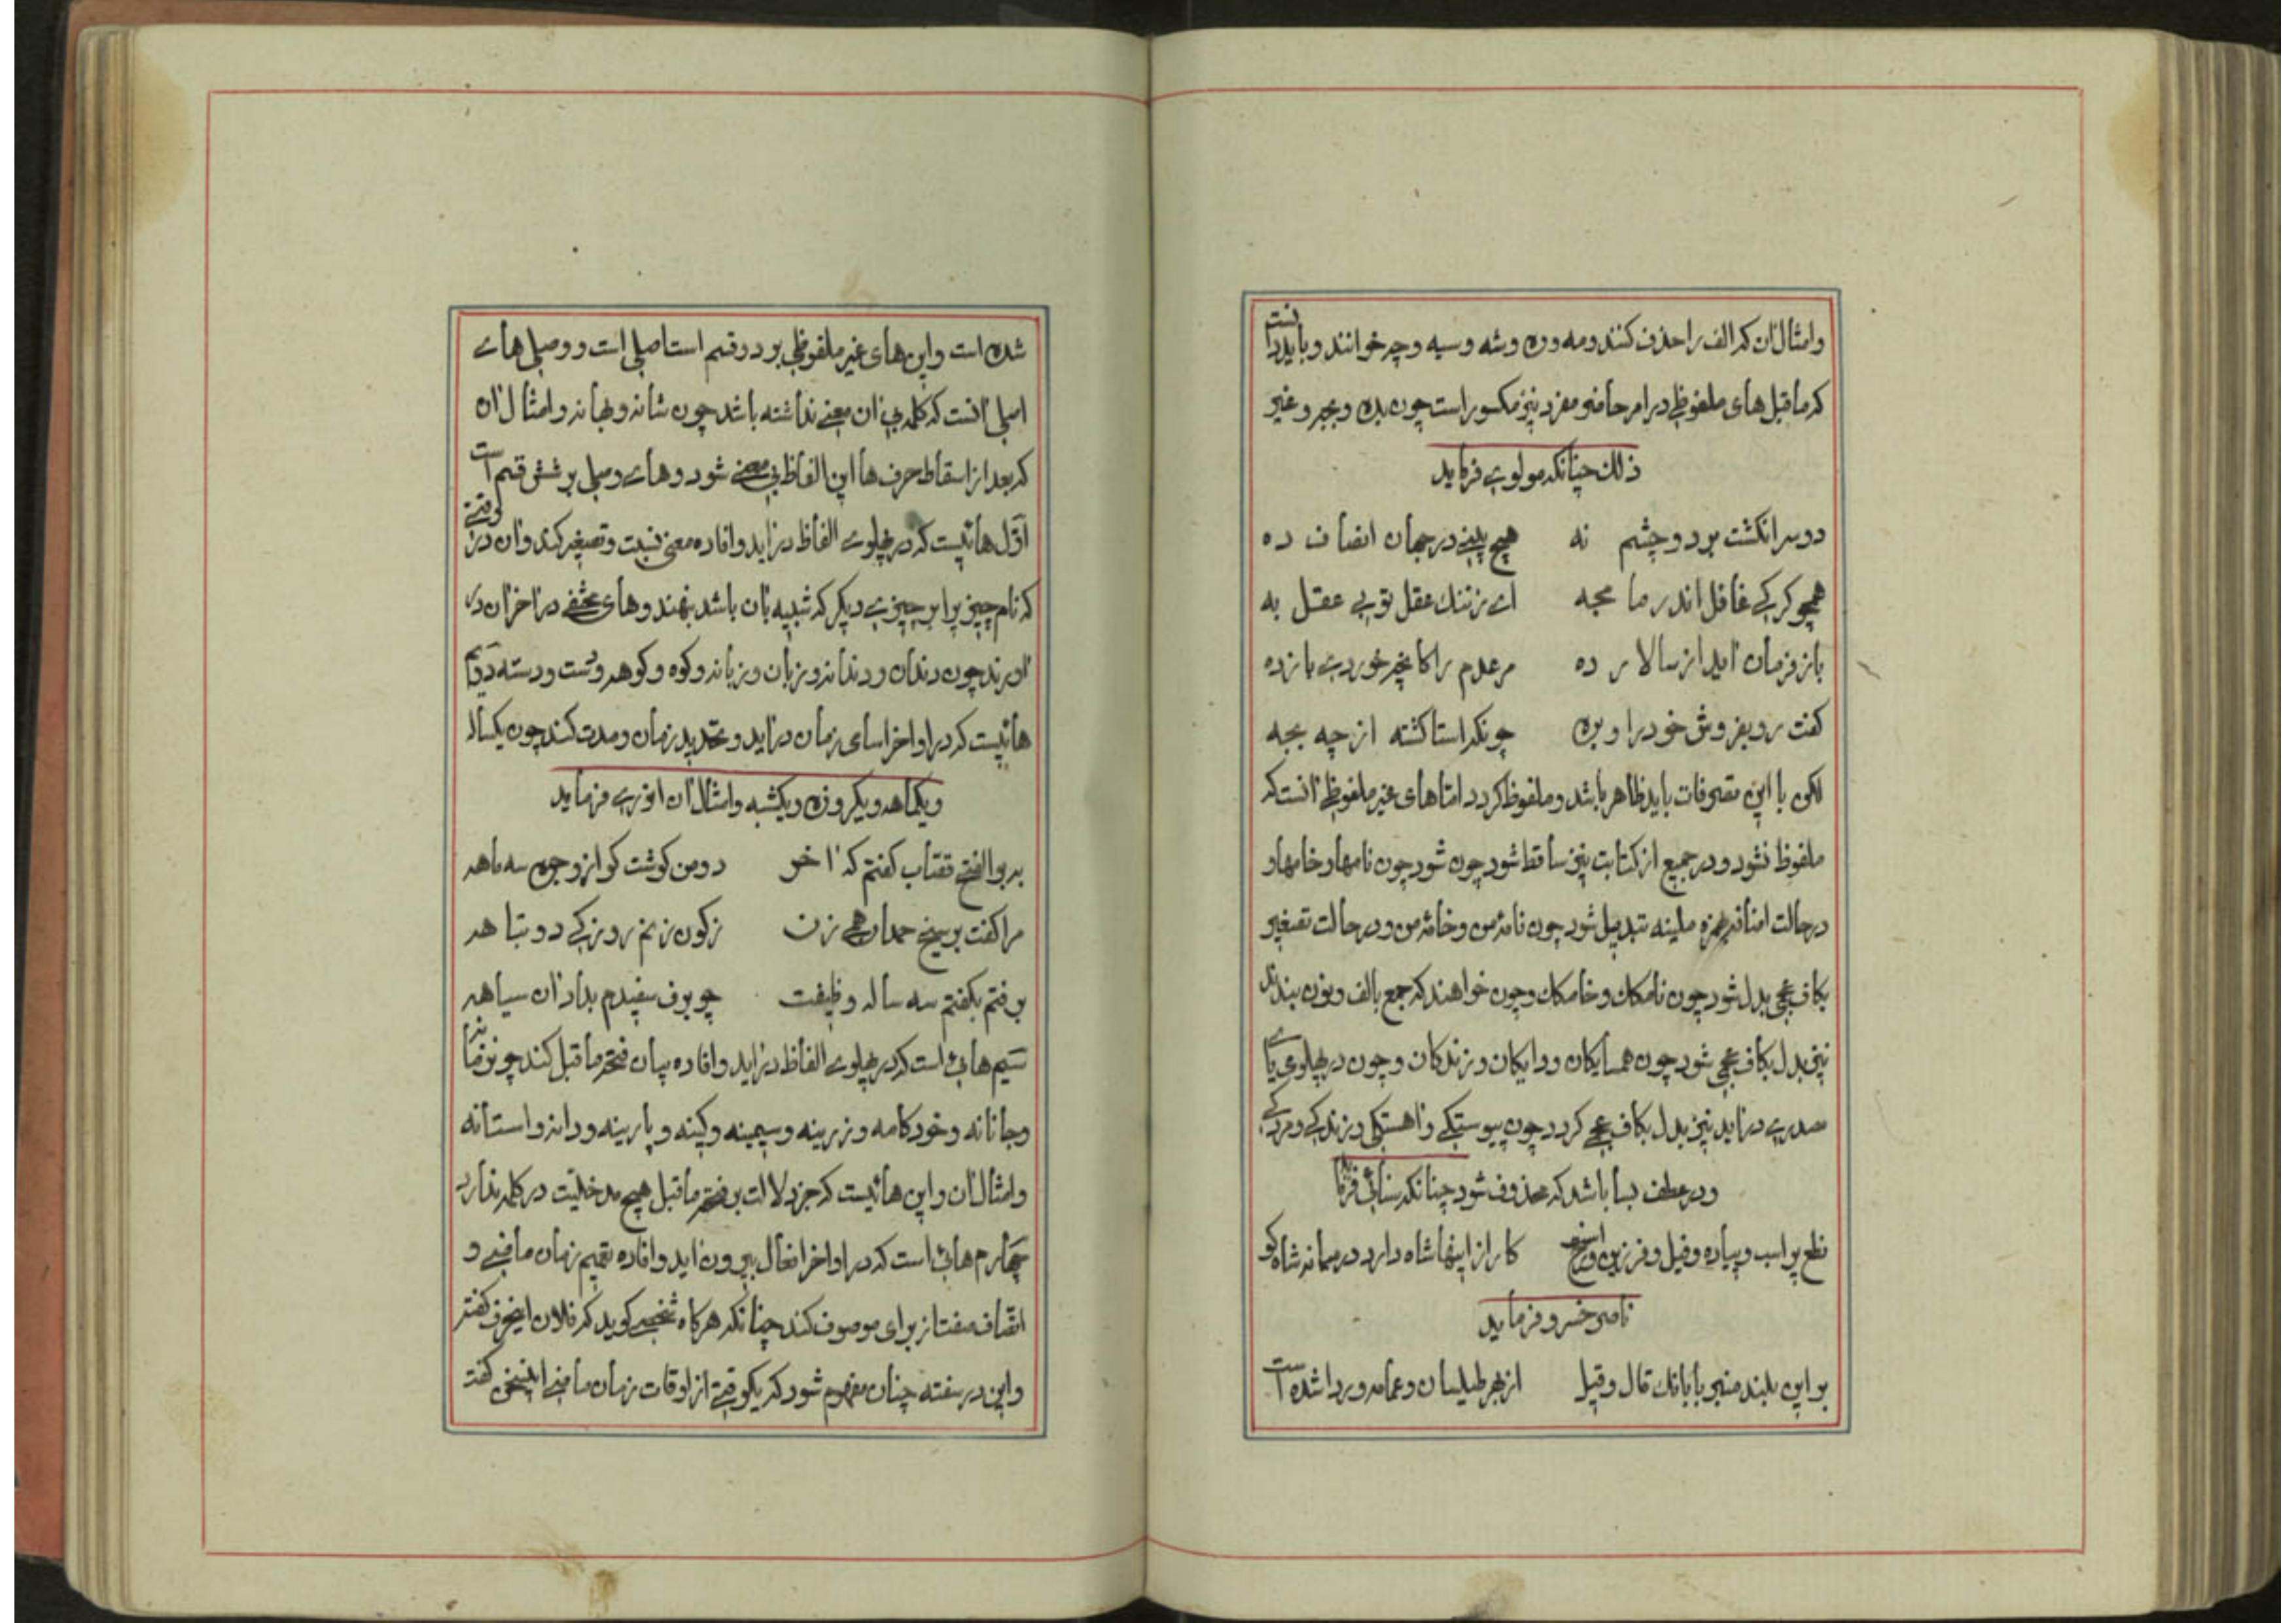 وامثال آن که الف را حذف کنند و مه و ره و شه و سیه و چه خوانند و باید دانست
که ماقبل های ملفوظی در امر حاضر مفرد نیز مکسور است چون بده و بجه و غیر
ذلك چنانکه مولوی فرماید
دو سر انکشت بر دو چشم نه هیچ بینی در جهان انصاف ده
همچو کرکی غافل اندر ما مجه ای ز ننك عقل تو بی عقل به
باز فرمان آید از سالار ده مر عدم را کانچه خوردی باز ده
کفت رو بفروش خود را و بره چونکه استا کشته از چه بجه
لکن با این تصرفات باید ظاهر باشد و ملفوظ کردد اما های غیر ملفوظی آنست که
ملفوظ نشود و در جمیع از کتابت نیز ساقط شود چون شود چون نامها و خامها و
در حالت اضافه بهمزه ملینه تبدیل شود چون نامۀ من و خامۀ من و در حالت تصغیر
بکاف عجمی بدل شود چون نامکك و خامکك و چون خواهند که جمع بالف و نون بندند
نیز بدل بکاف عجمی شود چون همسایکان و دایکان و زندکان و چون در پهلوی یای
مصدری در آید نیز بدل بکاف عجمی کردد چون پیوستکی و آهستکی و زندکی و مردکی
و در عطف بسا باشد که محذوف شود چنانکه سنائی فرماید
نطع پر اسب و پیاده و فیل و فرزین و رخ است کار از اینها شاه دارد در میانه شاه کو
ناصر خسرو فرماید
بر این بلند منبر با بانك قال و قیل از بهر طیلسان و عمامه و ردا شده است
شده است و این های غیر ملفوظی بر دو قسم است اصلی است و وصلی های
اصلی آنست که کلمه بی آن معنی نداشته باشد چون شانه و بهانه و امثال آن
که بعد از اسقاط حرف ها این الفاظ بی معنی شود و های وصلی بر شش قسم است
اول هائیست که در پهلوی الفاظ در آید و افاده معنی نسبت و تصغیر کند و آن در وقتی
که نام چیز برا بر چیزی دیکر که شبیه بآن باشد بنهند و های مختفی در آخر آن در
آورند چون دندان و دندانه و زبان و زبانه و کوه و کوهه و دست و دسته دویم
هائیست که در اواخر اسمای زمان در آید و تحدید زمان و مدت کند چون یکساله
و یکماهه و یکروزه و یکشبه و امثال آن انوری فرماید
بر بوالفتح قصاب کفتم که آخر دو من کوشت کو از وجوه سه ماهه
مرا کفت بر سیخ حمدان همی زن ز کون زنم روزکی دو تباهه
برفتم بکفتم سه ساله وظیفت چو برف سفیدم بداد آن سیاهه
سیم هائی است که در پهلوی الفاظ در آید و افاده بیان فتحه ماقبل کند چون
و جانانه و خودکامه و زرینه و سیمینه و کینه و پارینه و دانه و استانه
و امثال آن و این هائیست که جز دلالت بر فتحه ماقبل هیچ مدخلیت در کلمه ندارد
چهارم هائی است که در اواخر افعال بیرون آید و افاده تعمیم زمان ماضی و
اتصاف صفت از برای موصوف کند چنانکه هرکاه شخصی کوید که فلان اینحرف کفته
و این در سفته چنان مفهوم شود که بیکوقتی از اوقات زمان ماضی اینسخن کفته